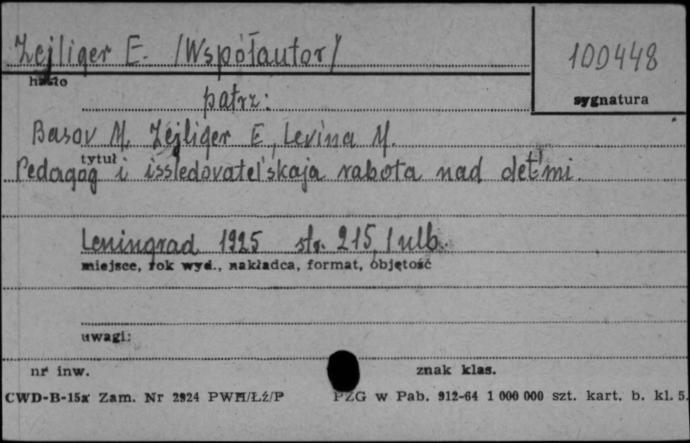 Zejliger E. /Współautor/
100448
hasło
sygnatura
patrz:
Basov M, Zejliger E, Levina M.
tytuł
Pedagog i issledovatel'skaja rabota nad det'mi.
Leningrad 1925 str. 215, 1 ulb.
miejsce, rok wyd., nakładca, format, objętość
uwagi:
nr inw.
znak klas.
CWD-B-15a Zam. Nr 2924 PWH/Łź/P PZG w Pab. 912-64 1 000 000 szt. kart. b. kl. 5.